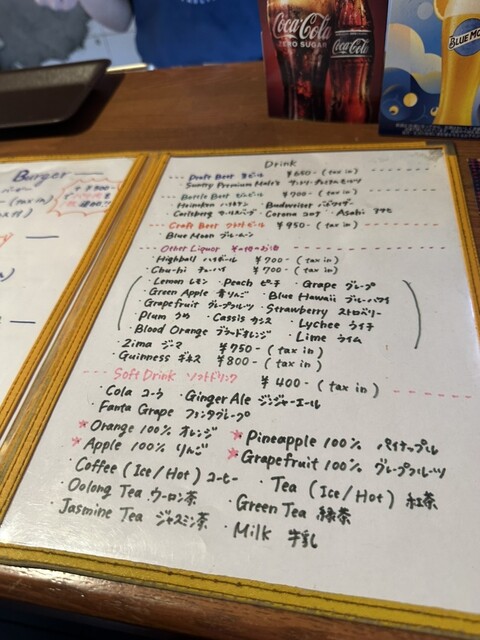 Coca-Cola
ZERO SUGAR
Coca-Cola
BLUE MO
Burger
(tax in)
Drink
Draft Beer 生ビール ¥650- (tax in)
Suntry Premium Malt's サントリープレミアムモルツ
Bottle Beer ビンビール ¥700- (tax in)
・Heineken ハイネケン ・Budweiser バドワイザー
・Carlsberg カールスバーグ ・Corona コロナ ・Asahi アサヒ
Craft Beer クラフトビール ¥950- (tax in)
・Blue Moon ブルームーン
Other Liquor その他のお酒
・Highball ハイボール ¥700- (tax in)
・Chu-hi チューハイ ¥700- (tax in)
・Lemon レモン ・Peach ピーチ ・Grape グレープ
・Green Apple 青りんご ・Blue Hawaii ブルーハワイ
・Grapefruit グレープフルーツ ・Strawberry ストロベリー
・Plum うめ ・Cassis カシス ・Lychee ライチ
・Blood Orange ブラッドオレンジ ・Lime ライム
・Zima ジーマ ¥750- (tax in)
・Guinness ギネス ¥800- (tax in)
Soft Drink ソフトドリンク ¥400- (tax in)
・Cola コーラ ・Ginger Ale ジンジャーエール
・Fanta Grape ファンタグレープ
*Orange 100% オレンジ *Pineapple 100% パイナップル
*Apple 100% りんご *Grapefruit 100% グレープフルーツ
・Coffee (Ice/Hot) コーヒー ・Tea (Ice/Hot) 紅茶
・Oolong Tea ウーロン茶 ・Green Tea 緑茶
・Jasmine Tea ジャスミン茶 ・Milk 牛乳